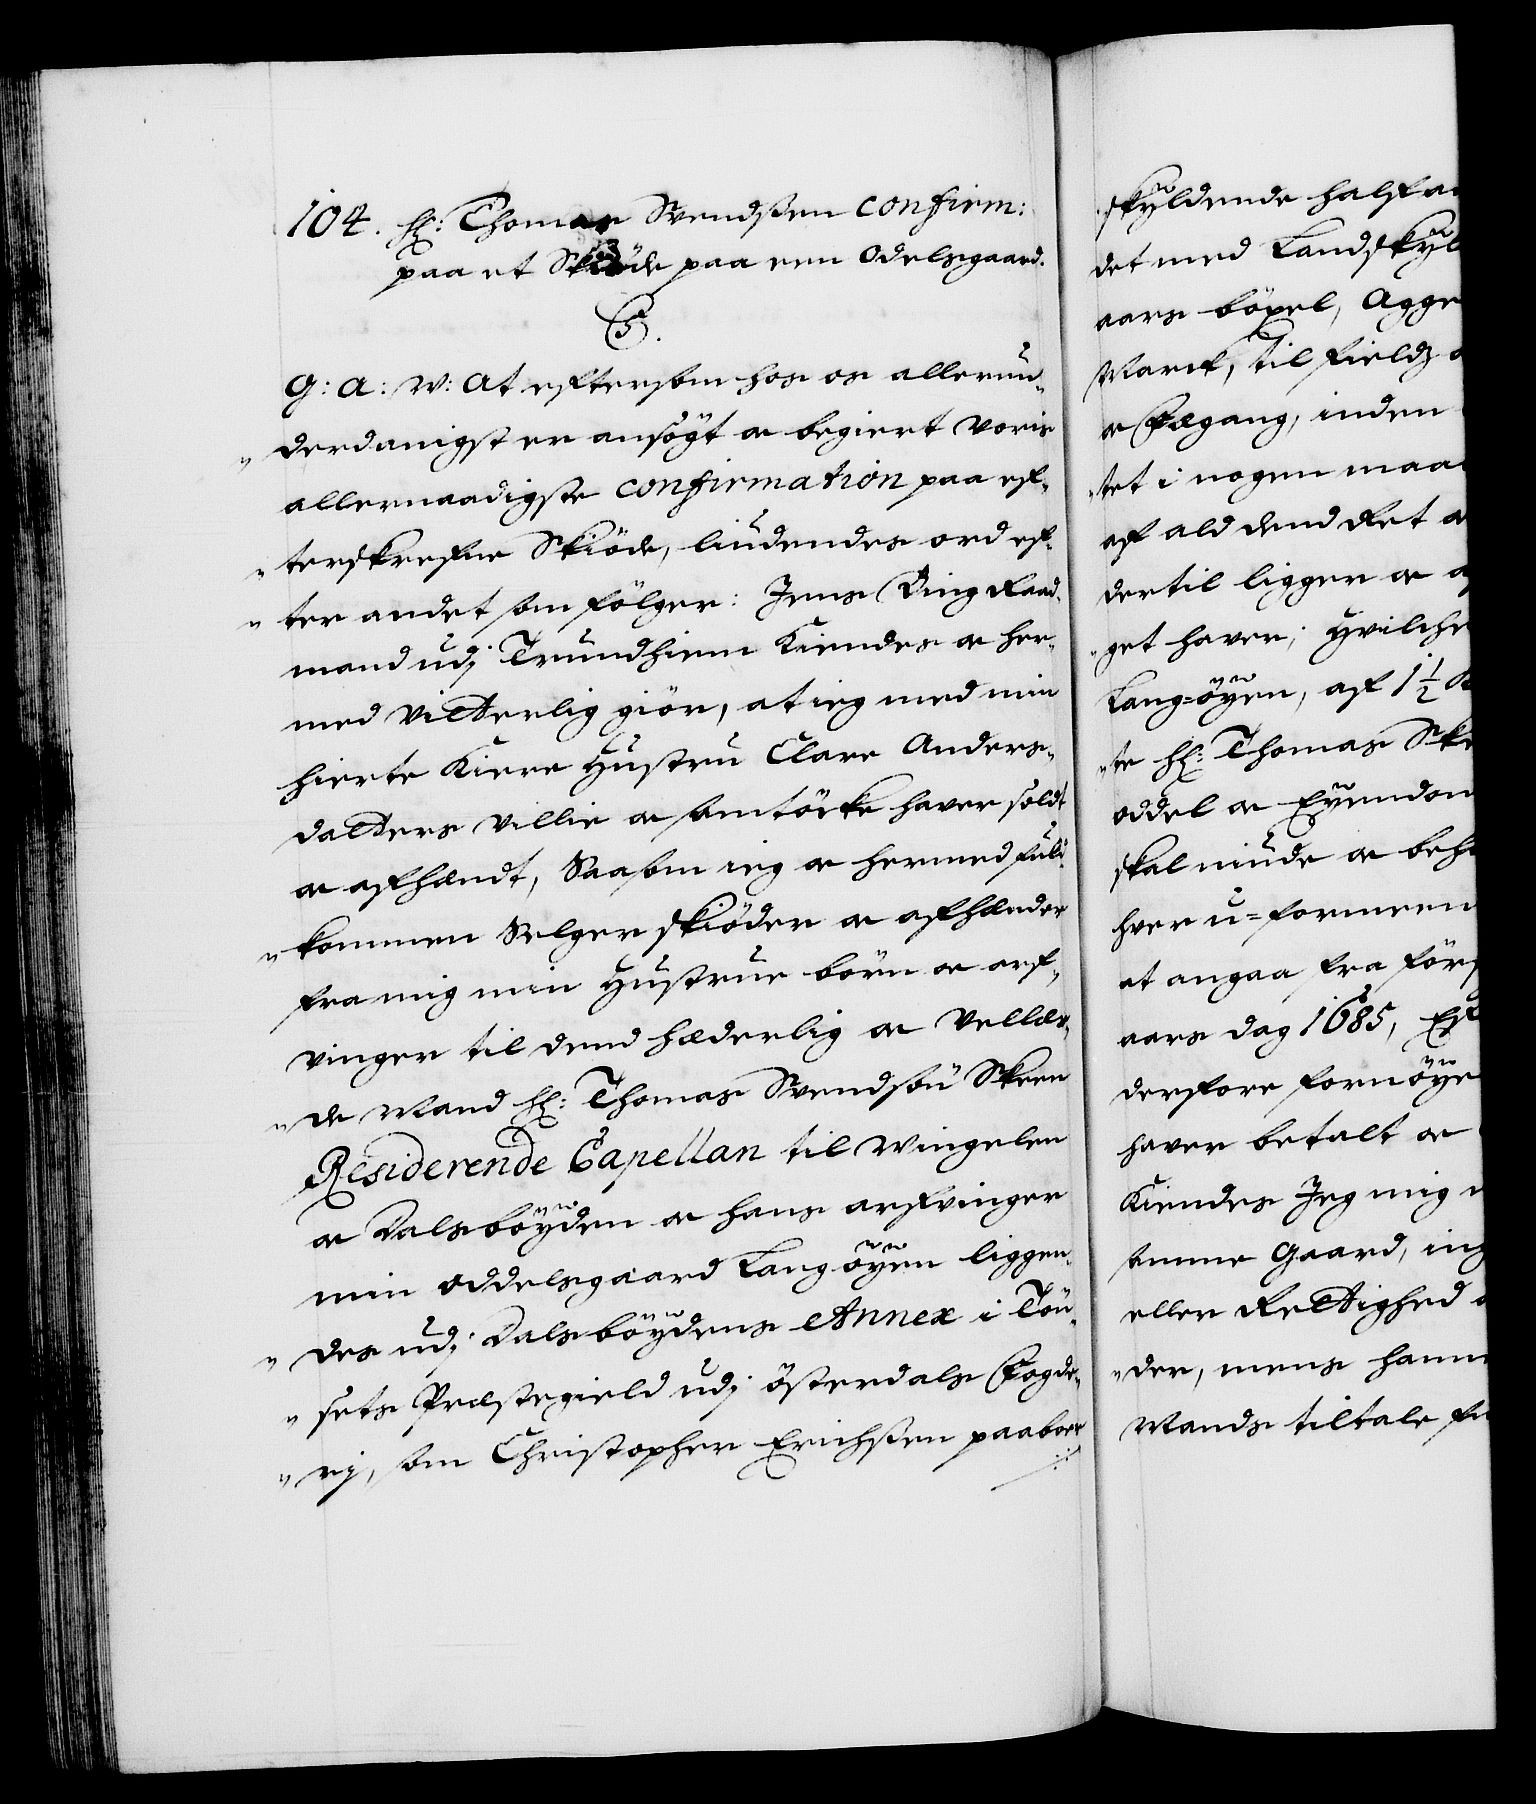 104. Hr: Thomas Svendssen Confirm:
paa et Skiöde paa een Odelsgaard.
C5.
G: A: W: At eftersom hos os allerun-
"derdanigst er ansögt oc begiert voris
allernaadigste Confirmation paa ef-
"terskrefne Skiöde, liudendes ord ef-
"ter andet som fölger: Jens Ding Raad-
mand udj Trundhiem Kiendes oc her-
med vitterlig giör, at ieg med min
hierte Kiere Hustru Clare Anders-
datters villie oc samtöcke haver soldt
oc afhændt, Saasom ieg oc hermed fuld-
"kommen Selger skiöder oc afhænder
fra mig min Hustrue börn oc arf-
vinger til dend hæderlig oc Vellær-
"de Mand Hr: Thomas Svendsön Skeen
Residerende Capellan til Wingelen
oc Dalsböyden oc hans arfvinger
min oddelsgaard Langöyen liggen-
"des udj Dalsböydens Annex i Tön-
"sets Præstegield udj österdals Fogde-
"rj, som Christopher Erichssen paaboer
skyldende half
det med Landskyl
aars böxel, Agge
Marck, til field
oc Fægang, inden
"tet i nogen maa
af ald dend Ret
dertil ligger oc
"get haver; Hvilche
Lang=öyen, af 1 1/2
"te Hr: Thomas Ske
oddel oc Eyendom
skal niude oc beh
hver u=formeen
at angaa fra förs
aars dag 1685, Ef
derfore fornöye
haver betalt oc
Kiendes Jeg mig
samme Gaard, ing
eller Rettighed
"der, mens hann
Mands tiltale